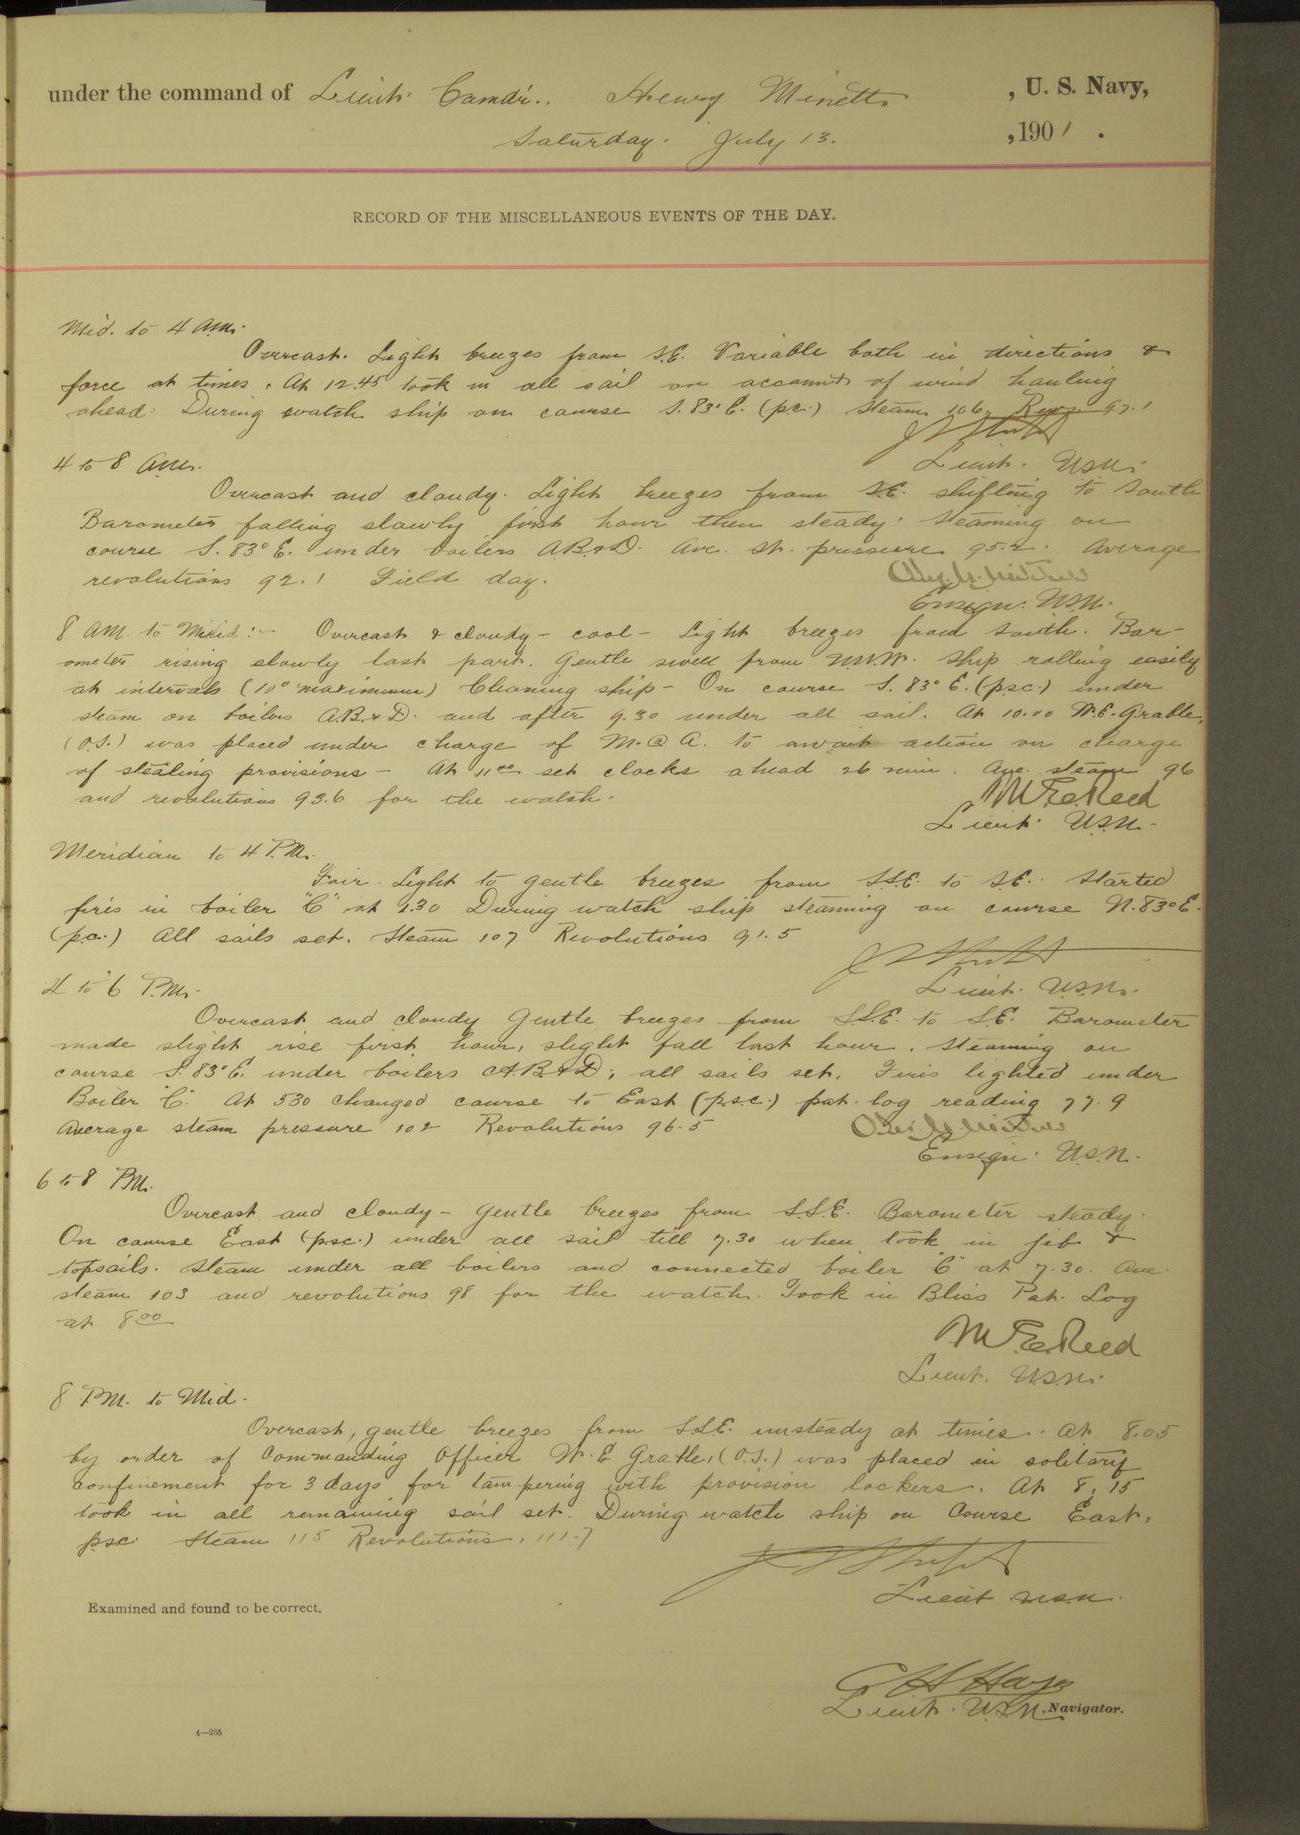 under the command of Lieut. Comdr. Henry Minett , U. S. Navy,
Saturday. July 13. , 1901 .
RECORD OF THE MISCELLANEOUS EVENTS OF THE DAY.
Mid. to 4 A.M.
Overcast. Light breezes from S.E. Variable both in directions &
force at times. At 12.45 took in all sail on account of wind hauling
ahead. During watch ship on course S. 83° E. (p.c.) Steam 106. Revs. 97.1
Lieut. U.S.N.
4 to 8 A.M.
Overcast and cloudy. Light breezes from S.E. shifting to South
Barometer falling slowly first hour then steady. Steaming on
course S. 83° E. under boilers A.B.&D. Ave. st. pressure 95.2. Average
revolutions 92.1 Field day.
Ensign. U.S.N.
8 A.M. to Merid:- Overcast & cloudy - cool - Light breezes from South. Bar-
ometer rising slowly last part. Gentle swell from N.N.W. Ship rolling easily
at intervals (10° maximum) Cleaning ship - On course S. 83° E. (p.s.c.) under
steam on boilers A.B.&D. and after 9.30 under all sail. At 10.00 W.E. Grable,
(O.S.) was placed under charge of M. @ A. to await action on charge
of stealing provisions - At 11 00 set clocks ahead 26 min. Ave. steam 96
and revolutions 93.6 for the watch.
M E Reed
Lieut. U.S.N.
Meridian to 4 P.M.
Fair. Light to gentle breezes from S.S.E. to S.E. Started
fires in boiler "C" at 2.30 During watch ship steaming on course N. 83° E.
(p.c.) All sails set. Steam 107 Revolutions 91.5
Lieut. U.S.N.
4 to 6 P.M.
Overcast and cloudy Gentle breezes from S.S.E. to S.E. Barometer
made slight rise first hour, slight fall last hour. Steaming on
course S. 83° E. under boilers A.B.&D; all sails set. Fires lighted under
Boiler "C". At 530 changed course to East (p.s.c.) pat. log reading 77.9
Average steam pressure 102 Revolutions 96.5
Ensign. U.S.N.
6 to 8 P.M.
Overcast and cloudy - Gentle breezes from S.S.E. Barometer steady.
On course East (p.s.c.) under all sail till 7.30 when took in jib &
topsails. Steam under all boilers and connected boiler "C" at 7.30. Ave.
steam 103 and revolutions 98 for the watch. Took in Bliss Pat. Log
at 8 00
M E Reed
Lieut. U.S.N.
8 P.M. to Mid.
Overcast, gentle breezes from S.S.E. unsteady at times. At 8.05
by order of Commanding Officer W. E. Grable, (O.S.) was placed in solitary
confinement for 3 days for tampering with provision lockers. At 8.15
took in all remaining sail set. During watch ship on Course East,
psc. Steam 115 Revolutions. 111.7
Lieut U.S.N.
Examined and found to be correct.
C H Hayes
Lieut. U.S.N., Navigator.
4—265